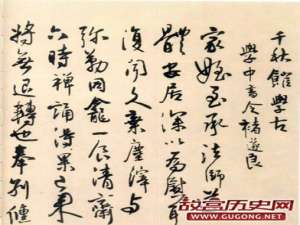 千秋館學古
學中書令褚遂良
家姪至承法師
體安居深以為慰耳
復聞久棄塵滓與
彌勒同龕一食清齋
六時禪誦得果已來
將無退轉也奉別倏
故宫历史网
www.GUGONG.NET